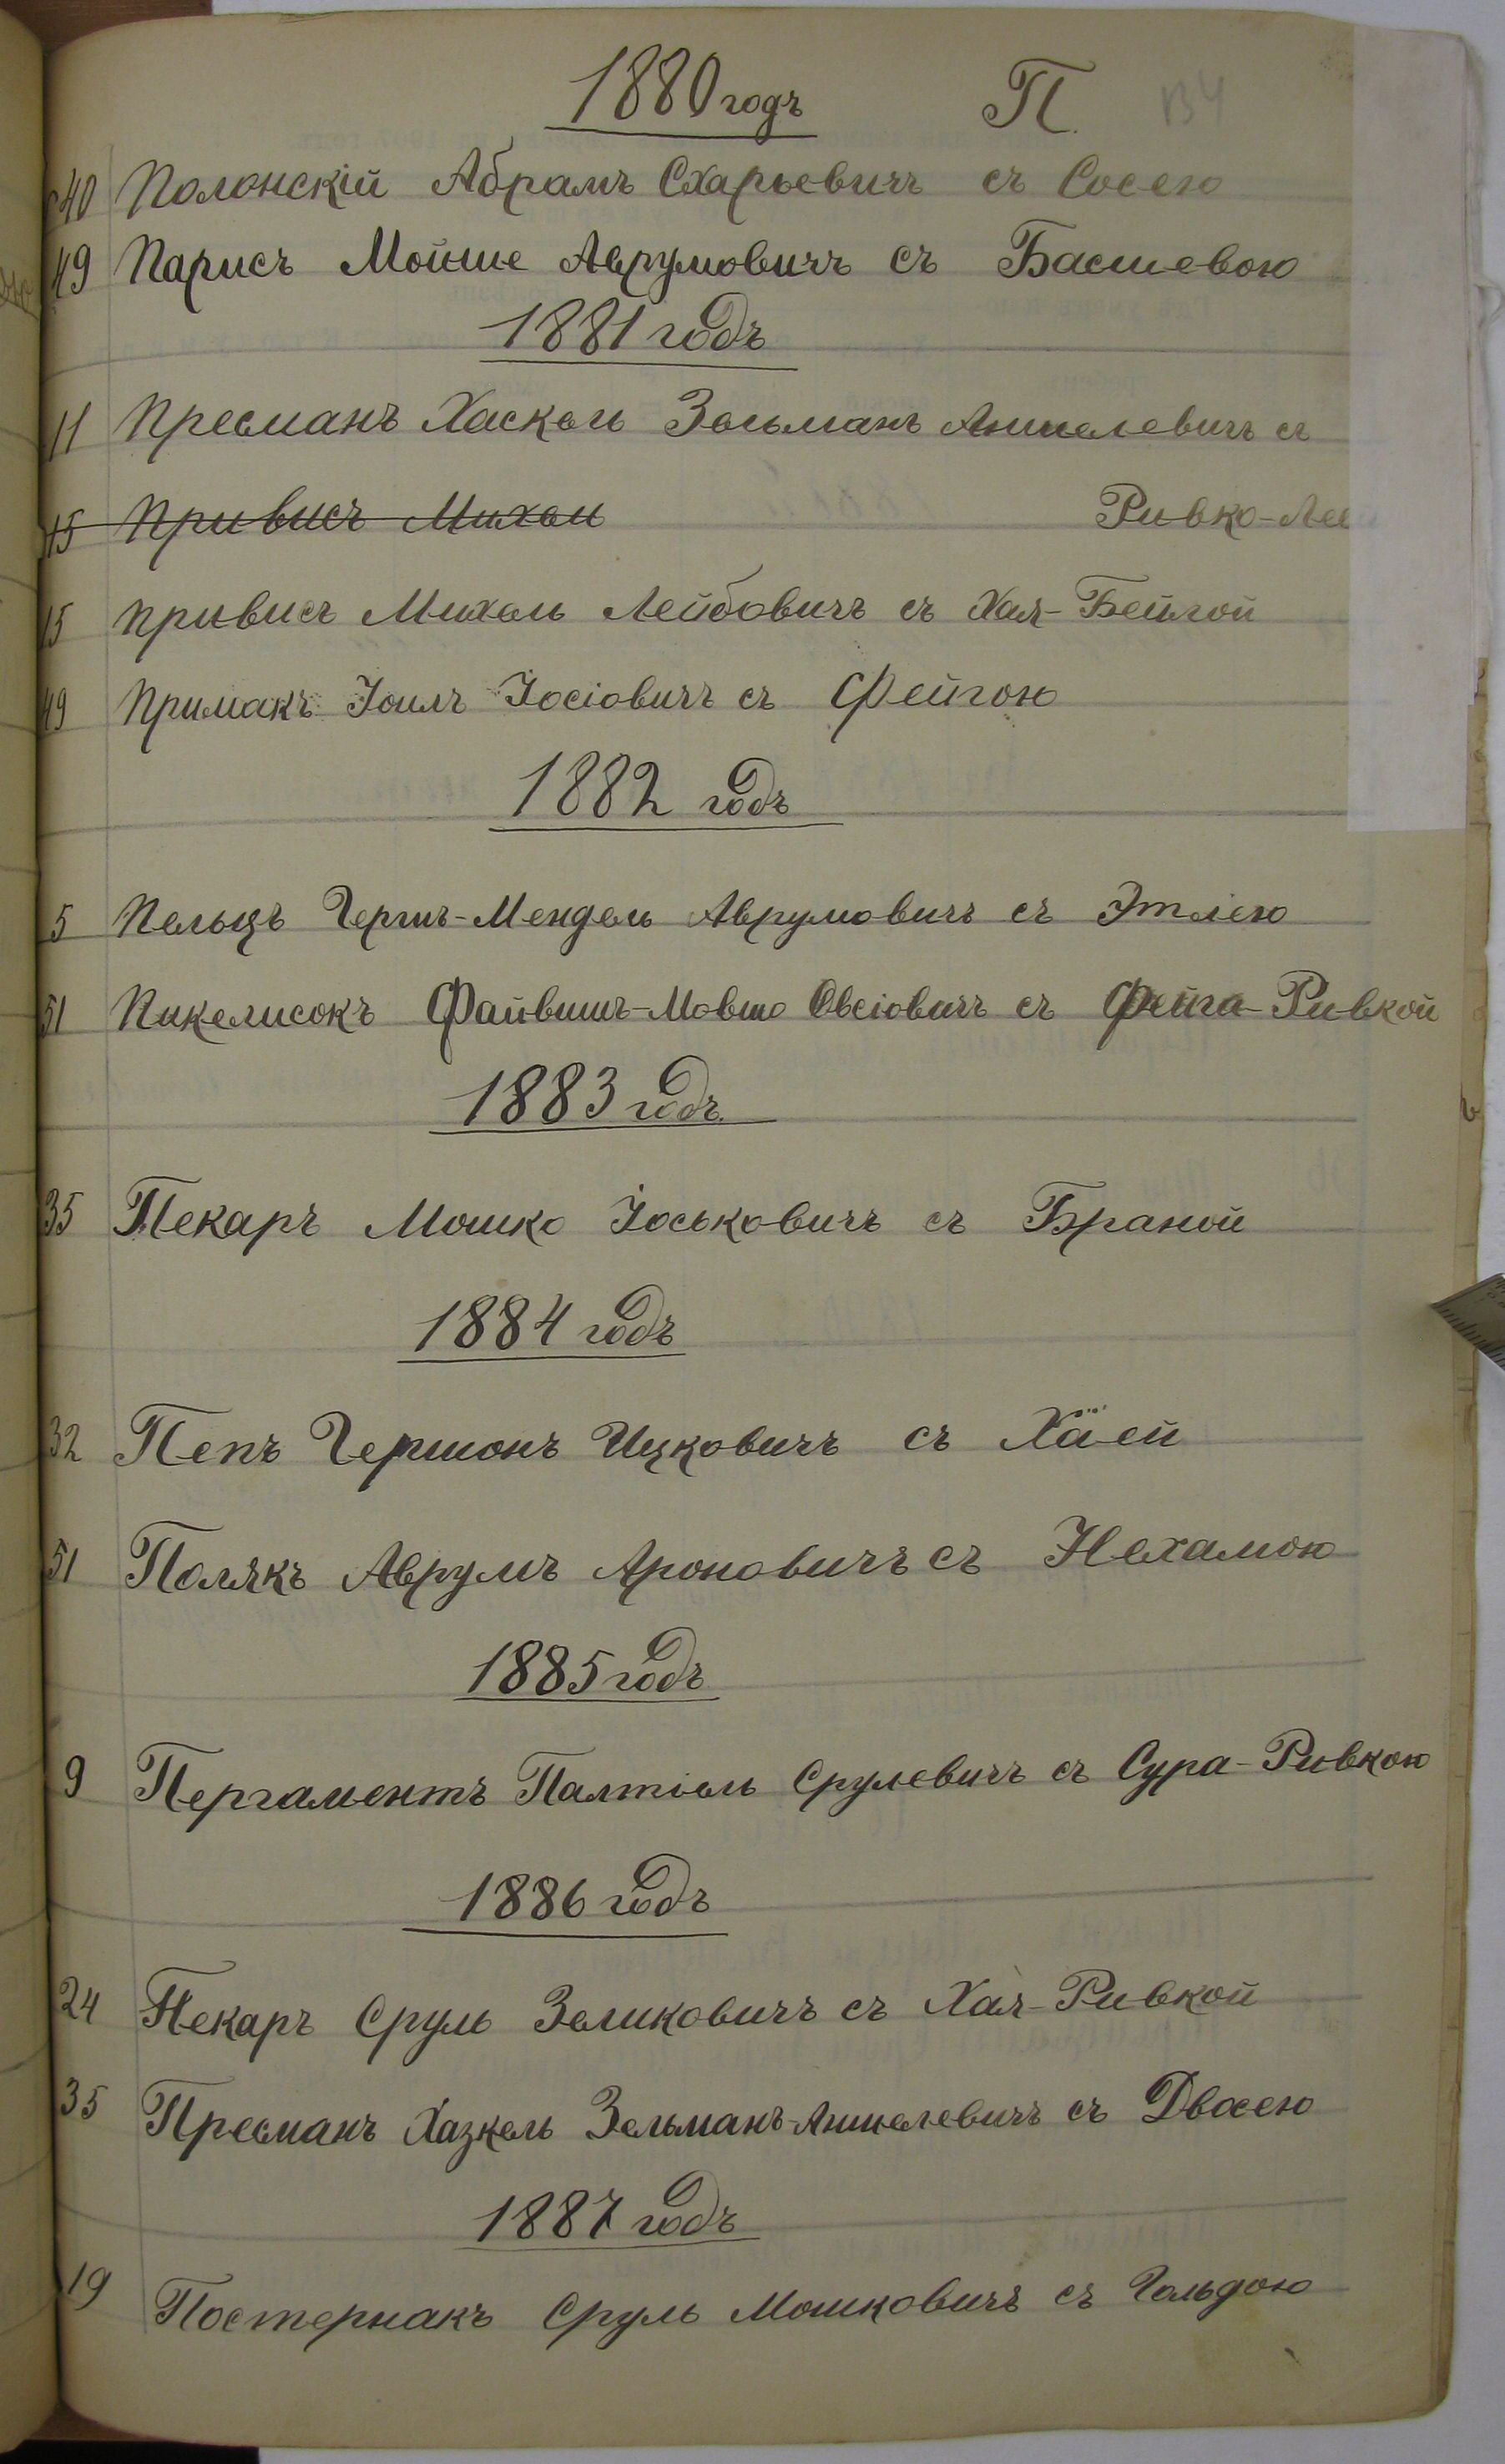 1880 годъ П. 134
40 Полонскій Абрамъ Схарьевичъ съ Сосею
49 Парисъ Мойше Аврумовичъ съ Басшевою
1881 годъ
11 Пресманъ Хаскель Зельманъ Аншелевичъ съ
15 Привисъ Михел Ривко-Лее
15 Привисъ Михель Лейбовичъ съ Хая-Бейлой
49 Примакъ Іоилъ Іосіовичъ съ Фейгою
1882 годъ
5 Пельцъ Гершъ-Мендель Аврумовичъ съ Этлею
51 Пикелисокъ Файвишъ-Мовшо Овсіовичъ съ Фейга-Ривкой
1883 годъ
35 Пекаръ Мошко Іоськовичъ съ Браной
1884 годъ
32 Пепъ Гершонъ Ицковичъ съ Хаей
51 Полякъ Аврумъ Ароновичъ съ Нехамою
1885 годъ
9 Пергаментъ Палтіель Срулевичъ съ Сура-Ривкою
1886 годъ
24 Пекаръ Сруль Зеликовичъ съ Хая-Ривкой
35 Пресманъ Хазкель Зельманъ-Аншелевичъ съ Двосею
1887 годъ
19 Постернакъ Сруль Мошковичъ съ Гольдою